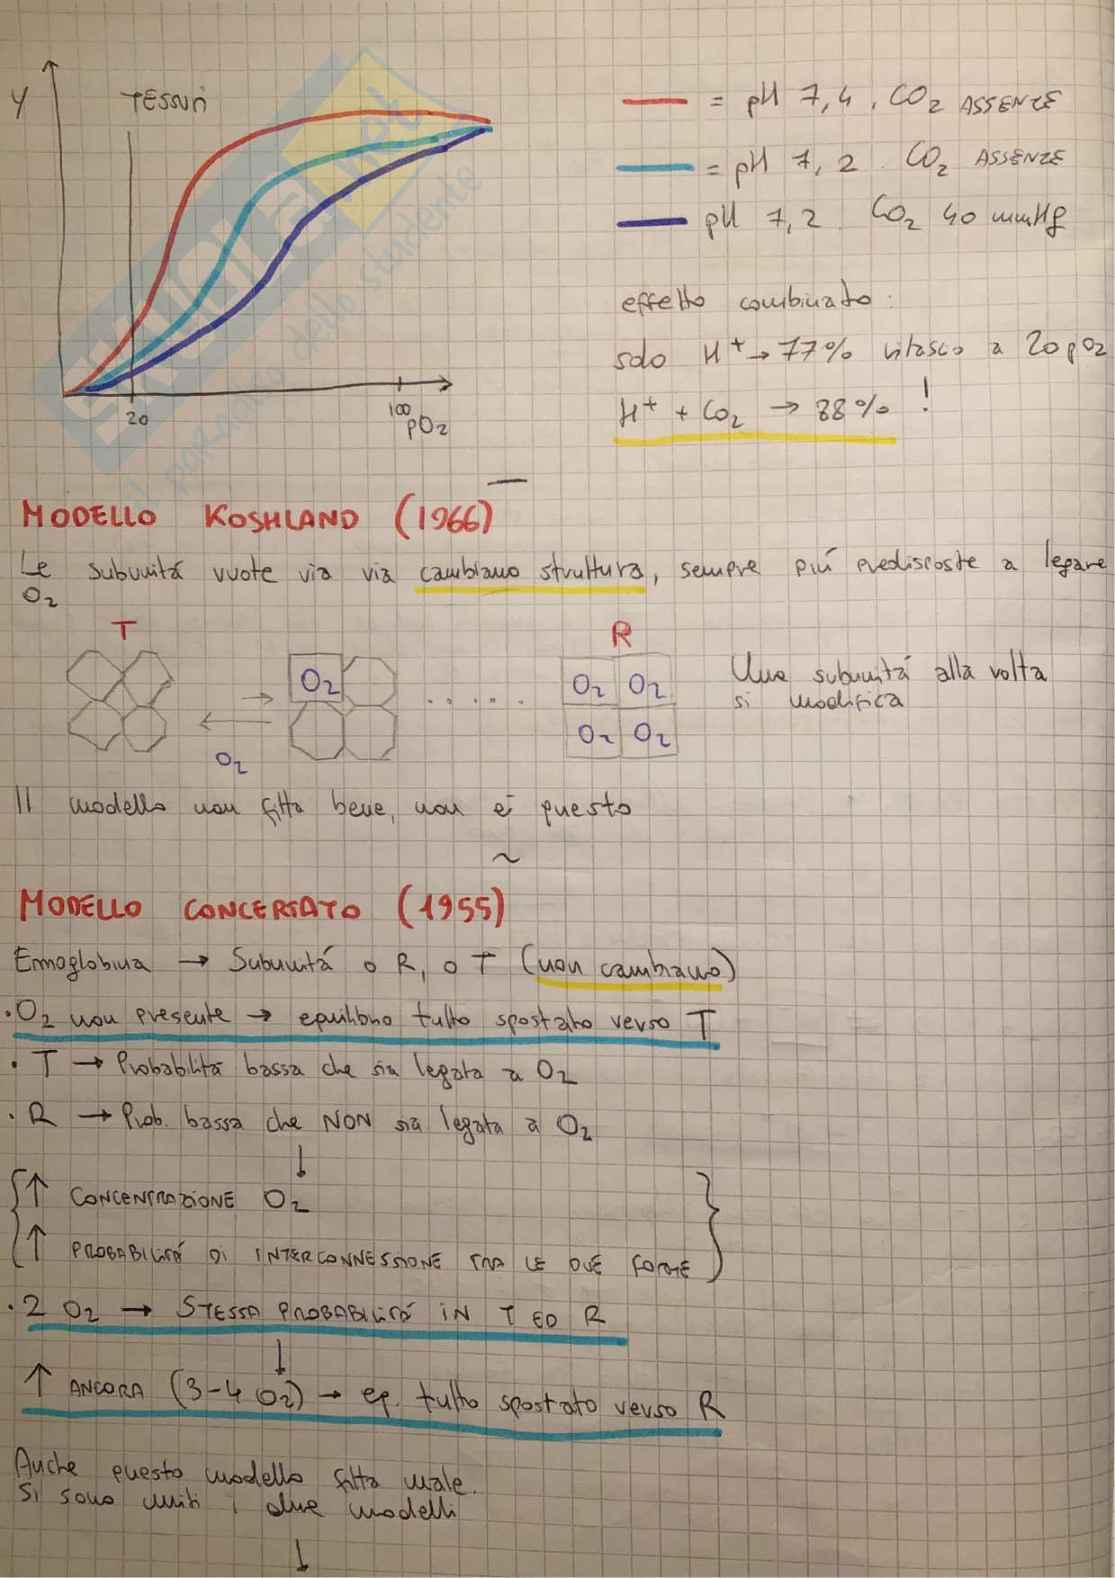 Y
TESSUTI
20
100
pO2
= pH 7,4, CO2 ASSENTE
= pH 7,2 CO2 ASSENTE
pH 7,2 CO2 40 mmHg
effetto combinato:
solo H+ → 77% rilascio a 20 pO2
H+ + CO2 → 88% !
MODELLO KOSHLAND (1966)
Le subunitá vuote via via cambiano struttura, sempre piú predisposte a legare
O2
T
R
O2
O2 O2
O2 O2
O2
Una subunitá alla volta
si modifica
Il modello non fitta bene, non é questo
~
MODELLO CONCERTATO (1955)
Emoglobina → Subunitá o R, o T (non cambiano)
· O2 non presente → equilibrio tutto spostato verso T
· T → Probabilitá bassa che sia legata a O2
· R → Prob. bassa che NON sia legata a O2
↓
↑ CONCENTRAZIONE O2
↑ PROBABILITÁ DI INTERCONNESSIONE TRA LE DUE FORME
· 2 O2 → STESSA PROBABILITÁ IN T ED R
↓
↑ ANCORA (3-4 O2) → eq. tutto spostato verso R
Anche questo modello fitta male.
Si sono uniti i due modelli
↓
SKUOLA.net
il paradiso dello studente